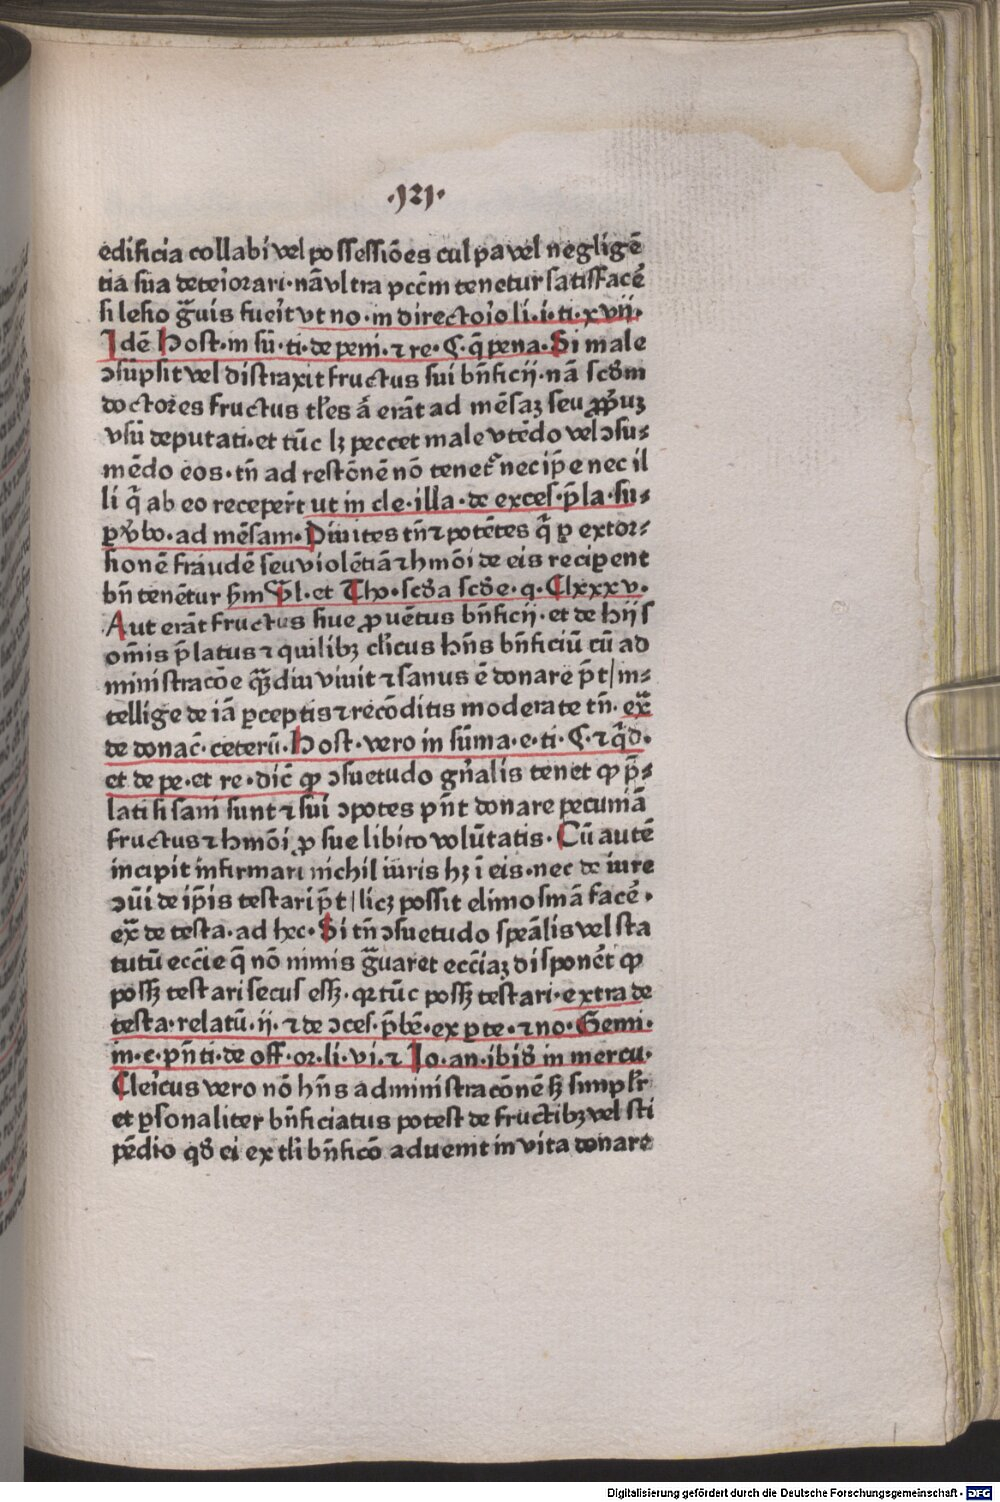 .121.
edificia collabi vel possessiões culpa vel negligē
tia sua deteriorari. nā vltra pccm̄ tenetur satisfacē
si lesio g̃uis fuerit vt no. in directorio li. i. ti. xvii.
Idē Host. in sū. ti. de peni. ⁊ re. ꝯ. q̄ pena. Si male
ꝯsūpsit vel distraxit fructus sui bn̄ficij. nā scd̄m
doctores fructus tl̄es ā erāt ad mēsaꝫ seu ꝓpriuꝫ
vsū deputati. et tūc lꝫ peccet male vtēdo vel ꝯsu⸗
mēdo eos. tn̄ ad restōnē nō tenetr̄ nec ip̄e nec il
li q̄ ab eo receper̄t ut in cle. illa. de exces. p̄la. su⸗
ꝑ v̄bo. ad mēsam. Diuites tn̄ ⁊ potētes q̄ ꝑ extor⸗
sionē fraudē seu violētiā ⁊ hmōi de eis reciperent
bn̄ tenētur hm̄ P̄l. et Tho. scd̄a scd̄e. q. Clxxxv.
Aut erāt fructus siue ꝓuētus bn̄ficij. et de hijs
om̄is p̄latus ⁊ quilibꝫ cl̄icus hn̄s bn̄ficiū cū ad
ministracōe q̄ꝫdiu viuit ⁊ sanus ē donare p̄t / in⸗
tellige de iā ꝑceptis ⁊ recōditis moderate tn̄. ex̄
de donac̄. ceterū. Host. vero in sūma. e. ti. ꝯ. ⁊ q̄d.
et de pe. et re. dic̄ ꝙ ꝯsuetudo gn̄alis tenet ꝙ p̄⸗
lati si sani sunt ⁊ sui ꝯpotes pn̄t donare pecuniā
fructus ⁊ hmōi ꝓ sue libito volūtatis. Cū autē
incipit infirmari nichil iuris hꝫ ī eis. nec de iure
ꝯūi de ip̄is testari p̄t / licꝫ possit elimosinā facē.
ex̄ de testa. ad hec. Si tn̄ ꝯsuetudo speālis vel sta
tutū ecc̄ie q̄ nō nimis g̃uaret ecc̄iaꝫ disponēt ꝙ
possꝫ testari secus essꝫ. qꝛ tūc possꝫ testari. extra de
testa. relatū. ij. ⁊ de ꝯces. p̄bē. ex ꝑte. ⁊ no. Gemi.
in. c. pn̄ti. de off. or. li. vi. ⁊ Io. an. ibid̄ in mercu.
Clericus vero nō hn̄s administracōnē sꝫ simplr̄
et ꝑsonaliter bn̄ficiatus potest de fructibꝫ vel sti
pēdio qd̄ ei ex tl̄i bn̄ficō aduenit in vita donare
Digitalisierung gefördert durch die Deutsche Forschungsgemeinschaft - DFG